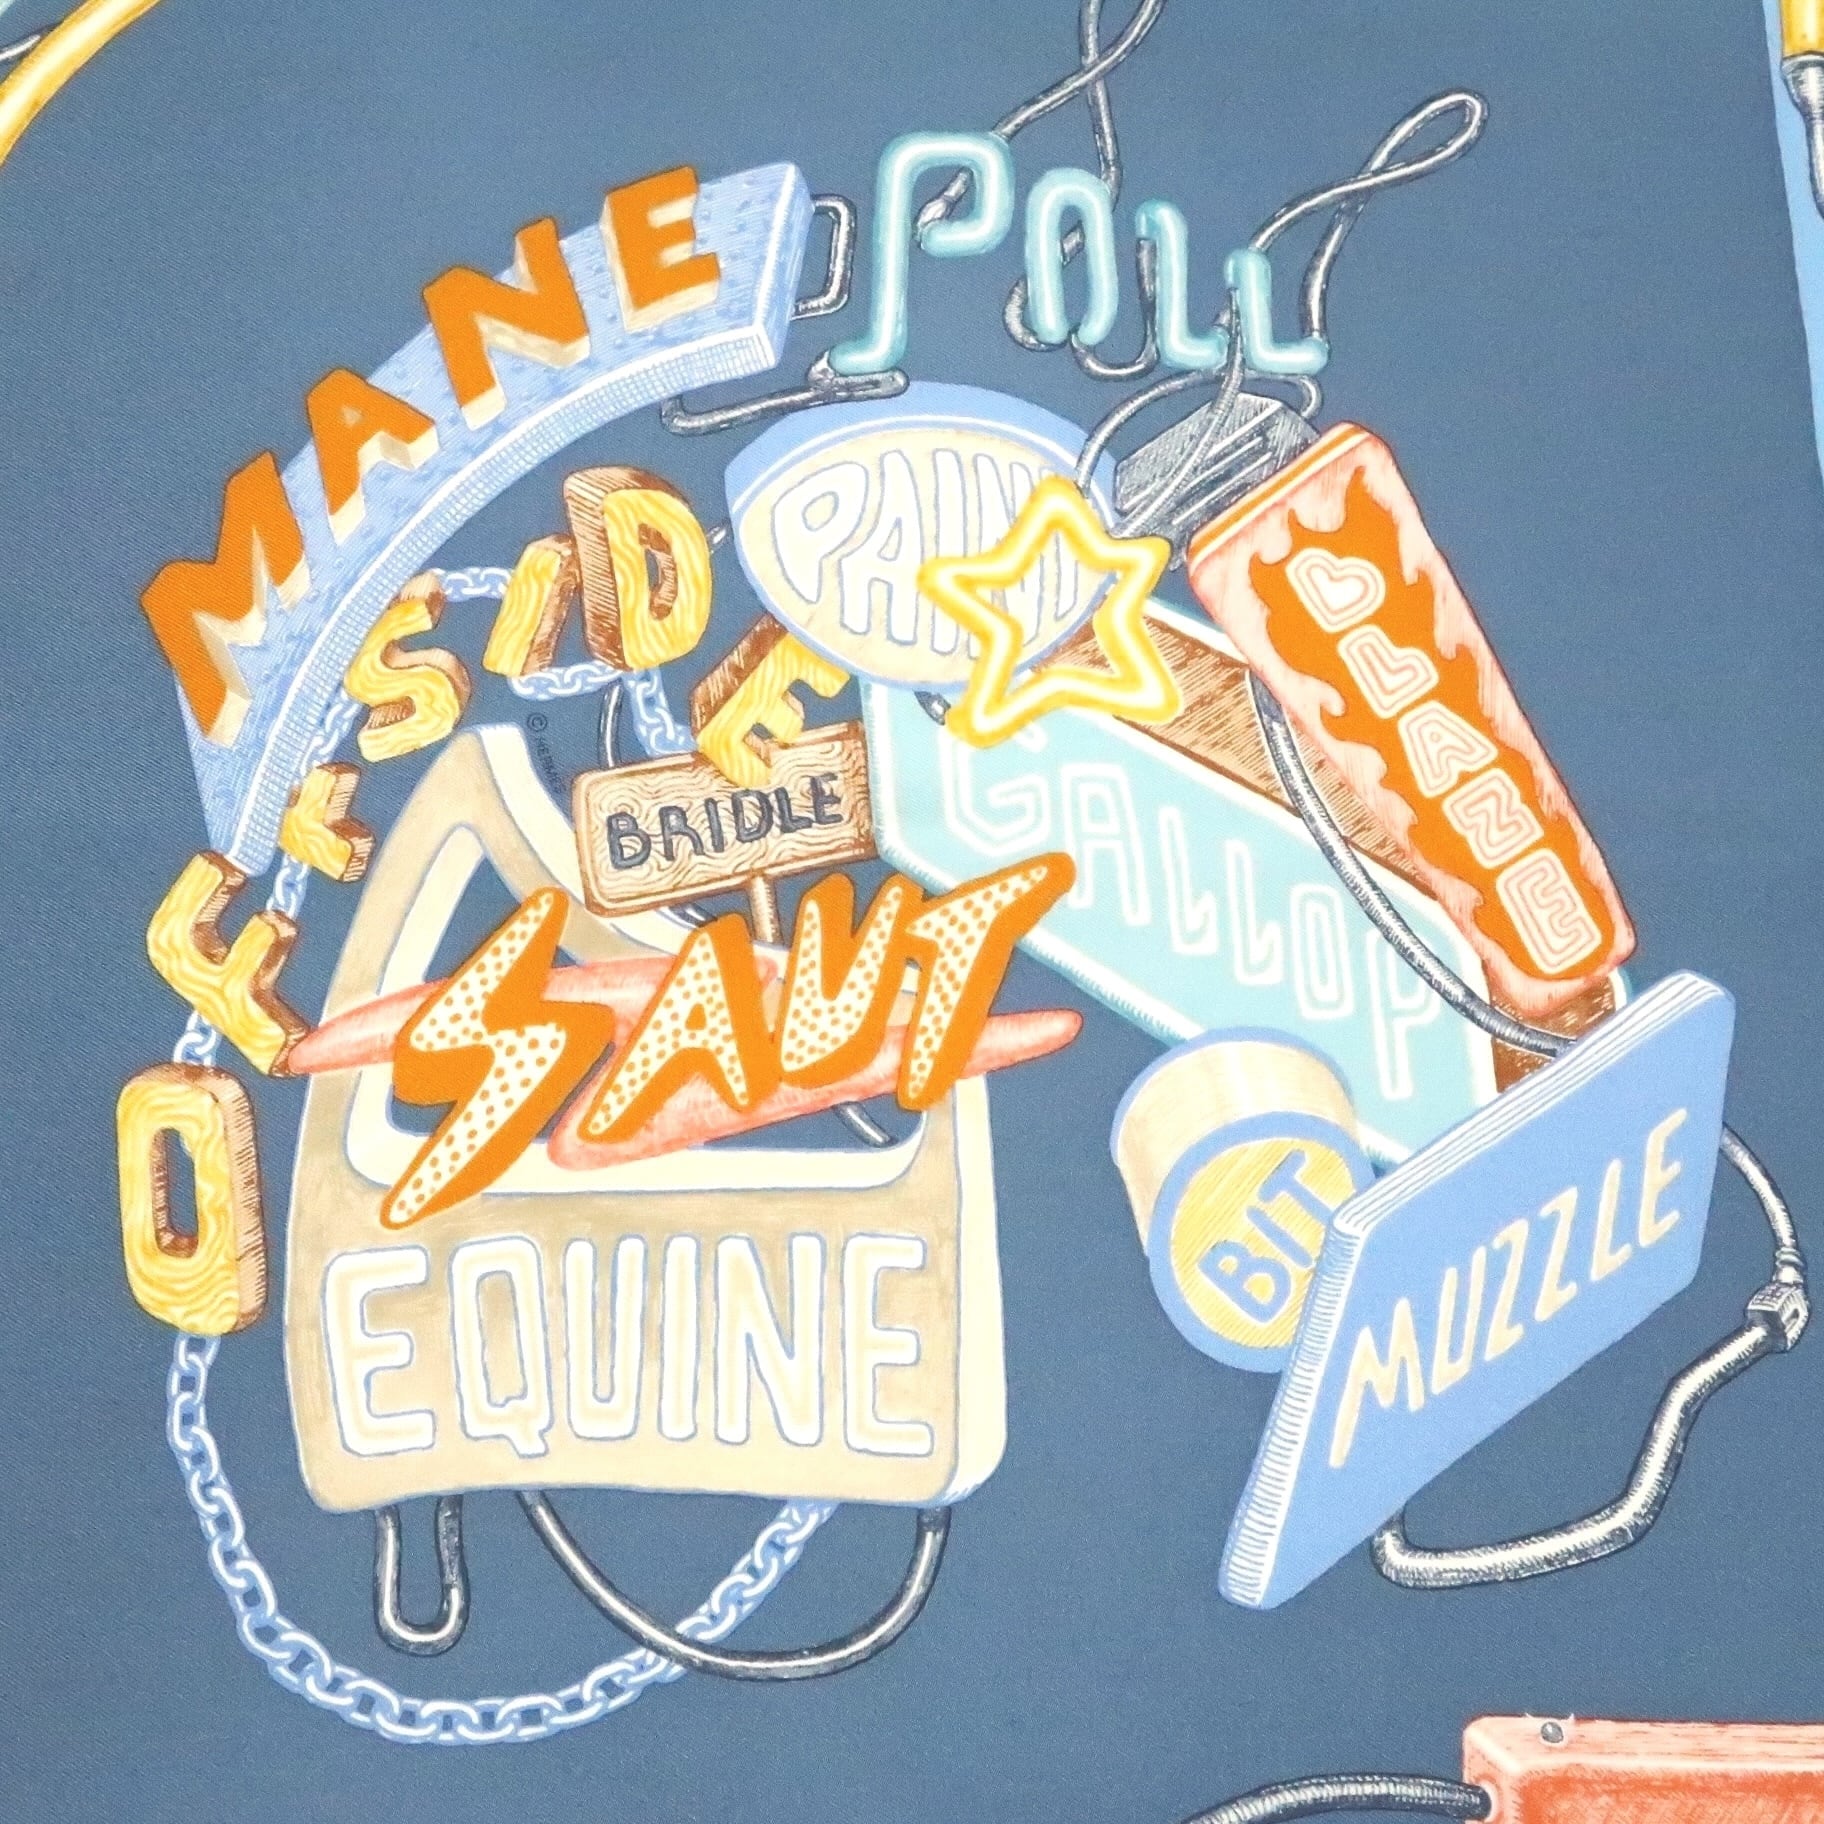 MANE
POLL
OFFSIDE
PAINT
BLAZE
© HERMÈS
BRIDLE
GALLOP
SAUT
BIT
MUZZLE
EQUINE